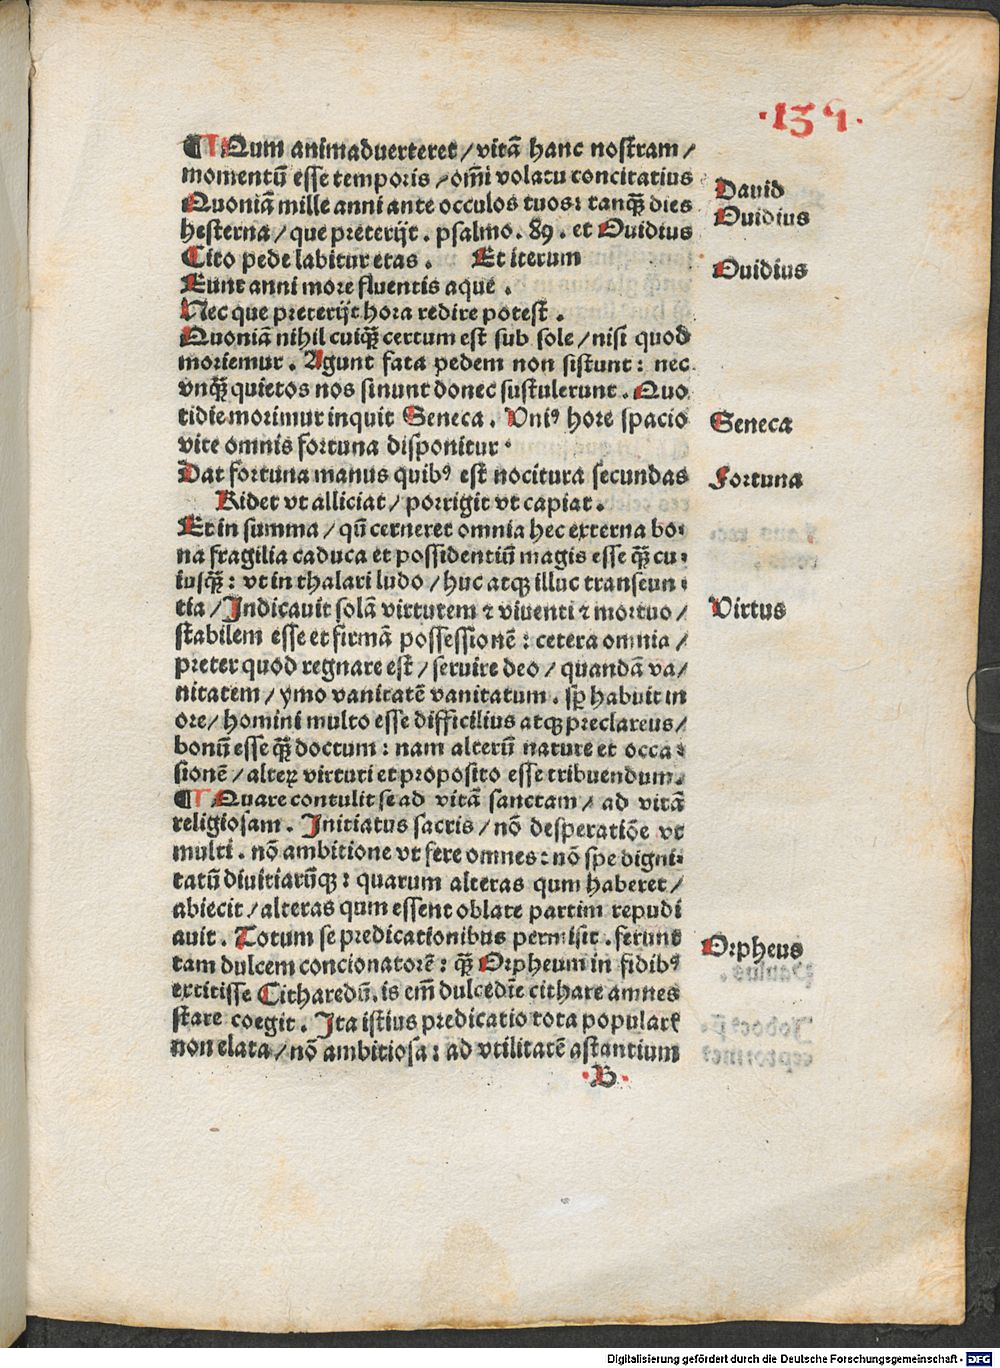 ·139·
¶ Qum animaduerteret / vitã hanc nostram /
momentũ esse temporis / om̃i volatu concitatius
Quoniã mille anni ante occulos tuos: tanqꝫ dies
hesterna / que preterijt . psalmo . 89 . et Ouidius
Cito pede labitur etas . Et iterum
Eunt anni more fluentis aque .
Nec que preterijt hora redire potest .
Quoniã nihil cuiqꝫ certum est sub sole / nisi quod
moriemur . Agunt fata pedem non sistunt : nec
vnqꝫ quietos nos sinunt donec sustulerunt . Quo
tidie morimur inquit Seneca . Vniꝰ hore spacio
vite omnis fortuna disponitur·
Dat fortuna manus quibꝰ est nocitura secundas
Ridet vt alliciat / porrigit vt capiat .
Et in summa / qũ cerneret omnia hec externa bo·
na fragilia caduca et possidentiũ magis esse qꝫ cu·
iusqꝫ : vt in thalari ludo / huc atqꝫ illuc transeun·
tia / Indicauit solã virtutem ⁊ viuenti ⁊ mortuo /
stabilem esse et firmã possessionẽ : cetera omnia /
preter quod regnare est / seruire deo / quandã va/
nitatem / ymo vanitatẽ vanitatum . sꝑ habuit in
ore / homini multo esse difficilius atqꝫ preclareus /
bonũ esse qꝫ doctum : nam alterũ nature et occa·
sionẽ / alteꝝ virtuti et proposito esse tribuendum.
¶ Quare contulit se ad vitã sanctam / ad vitã
religiosam . Initiatus sacris / nõ desperatiõe vt
multi . nõ ambitione vt fere omnes : nõ spe digni·
tatũ diuitiarũqꝫ : quarum alteras qum haberet /
abiecit / alteras qum essent oblate partim repudi
auit . Totum se predicationibus permisit . ferunt
tam dulcem concionatorẽ : qꝫ Orpheum in fidibꝰ
extitisse Citharedũ . is em̃ dulcedĩe cithare amnes
stare coegit . Ita istius predicatio tota popularẽ
non elata / nõ ambitiosa : ad vtilitatẽ astantium
·B·
Dauid
Ouidius
Ouidius
Seneca
Fortuna
Virtus
Orpheus
Digitalisierung gefördert durch die Deutsche Forschungsgemeinschaft - DFG